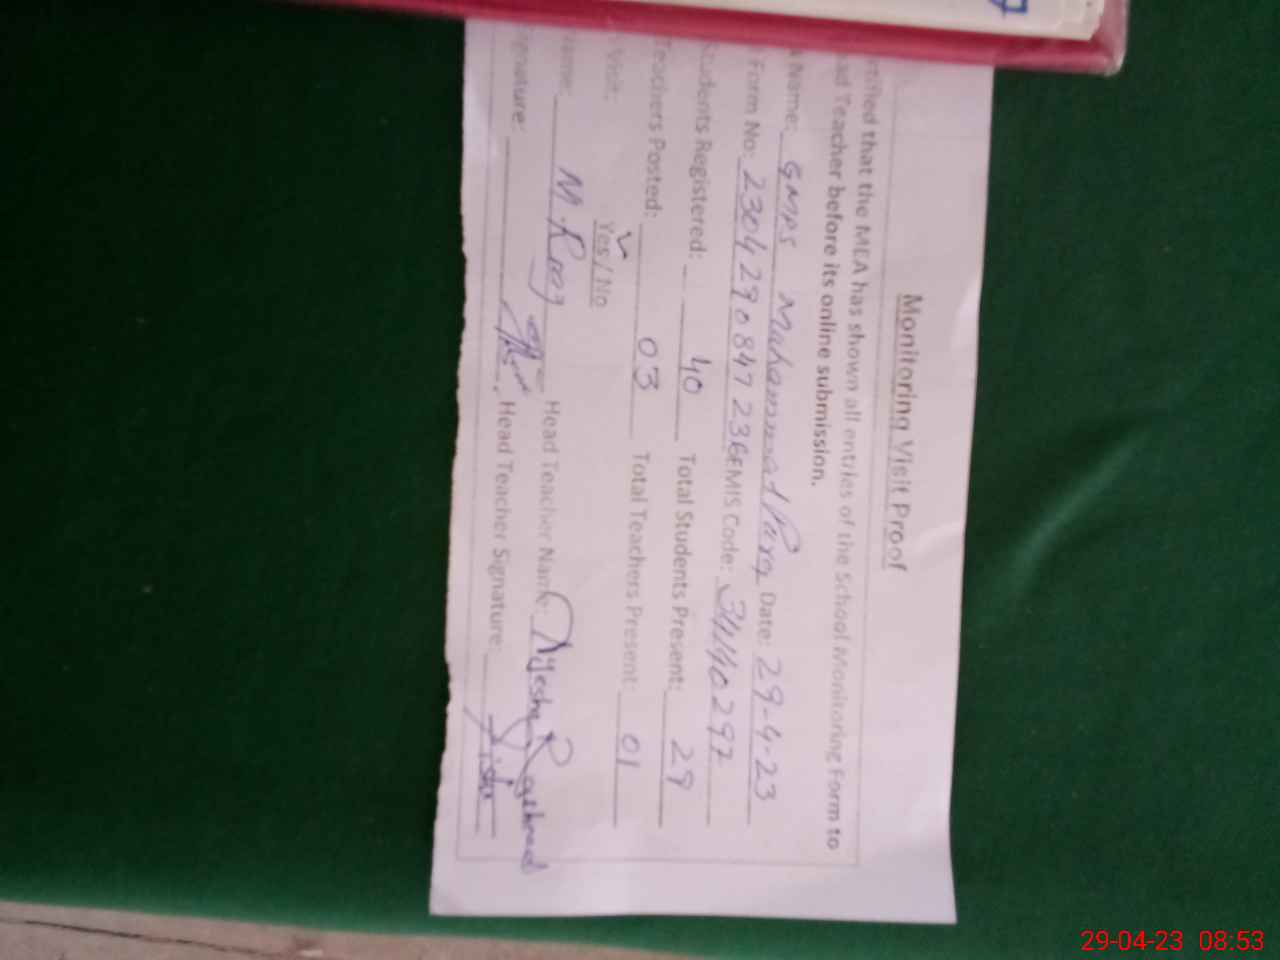 Monitoring Visit Proof
rtified that the MEA has shown all entries of the School Monitoring Form to
ad Teacher before its online submission.
Name: GMPS Muhammad Date: 29-4-23
Form No: 230429084723 EMIS Code: 34140297
Students Registered: 40 Total Students Present: 29
Teachers Posted: 03 Total Teachers Present: 01
Visit: Yes / No
ame: M. Head Teacher Name: Ayesha
ignature: Head Teacher Signature:
29-04-23 08:53